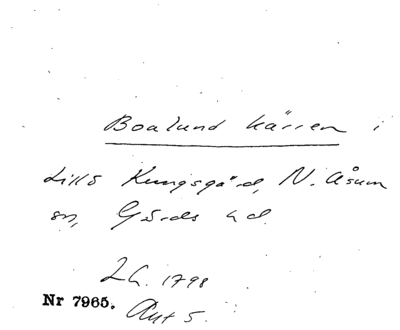 Boalund kärren i
Lillö Kungsgård, N. Åsum
sn, Gärds hd.
LA. 1798
Nr 7965. Akt 5.